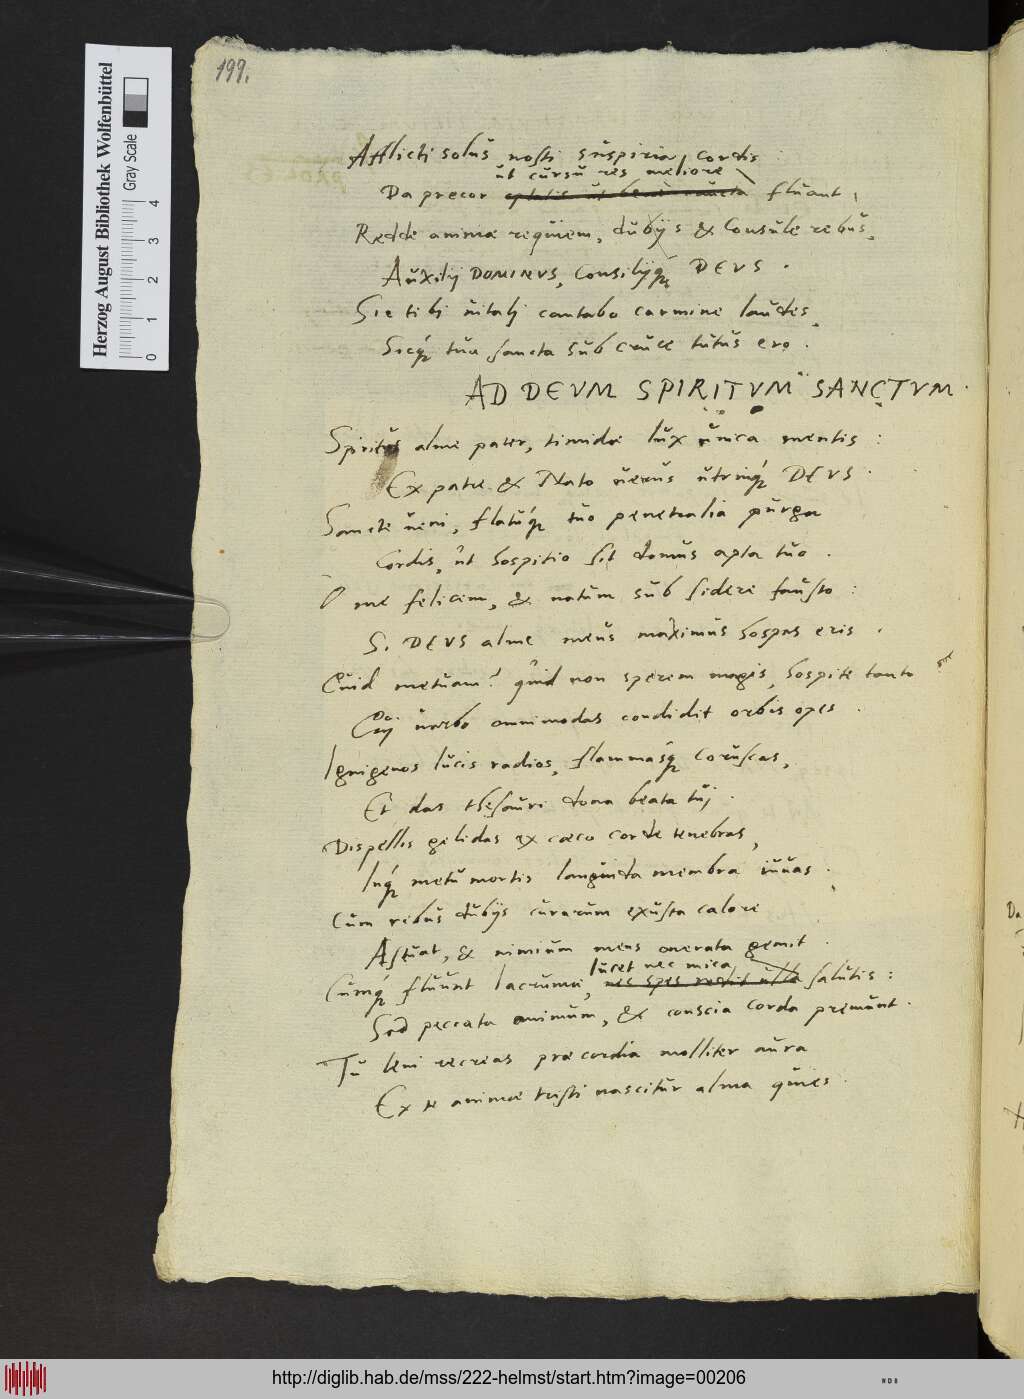 199.
Afflicti solus nosti suspiria cordis
ut cursu res meliore
Da precor fluant,
Redde animæ requiem, dubijs & Consule rebus,
Auxilij DOMINVS, Consilijq́; DEVS.
Sic tibi uitalj cantabo carmine laudes,
Sicq́; tua sancta sub cruce tutus ero.
AD DEVM SPIRITVM SANCTVM.
Spiritus alme pater, timidæ lux unica mentis:
Ex patre & Nato uerus utrinq́; DEVS.
Sancte ueni, flatuq́; tuo penetralia purga
Cordis, ut hospitio sit domus apta tuo.
O me felicem, & natum sub sidere fausto:
Si DEVS alme meus maximus hospes eris.
Quid metuam? quid non sperem magis, hospite tanto
Cuj uerbo omnimodas condidit orbis opes.
Ignigenos lucis radios, flammasq́; coruscas,
Et das thesauri dona beata tuj.
Dispellis gelidas ex cæco corde tenebras,
Inq́; metu mortis languida membra iuuas.
Cum rebus dubijs curarum exusta calore
Æstuat, & nimium mens onerata gemit.
lucet nec mica
Cumq́; fluunt lacrumæ, nec spes redit ulla salutis:
Sed peccata animum, & conscia corda premunt.
Tu leni recreas præcordia molliter aura
Ex te animæ tristi nascitur alma quies.
Herzog August Bibliothek Wolfenbüttel
Gray Scale
0 1 2 3 4
Da
http://diglib.hab.de/mss/222-helmst/start.htm?image=00206